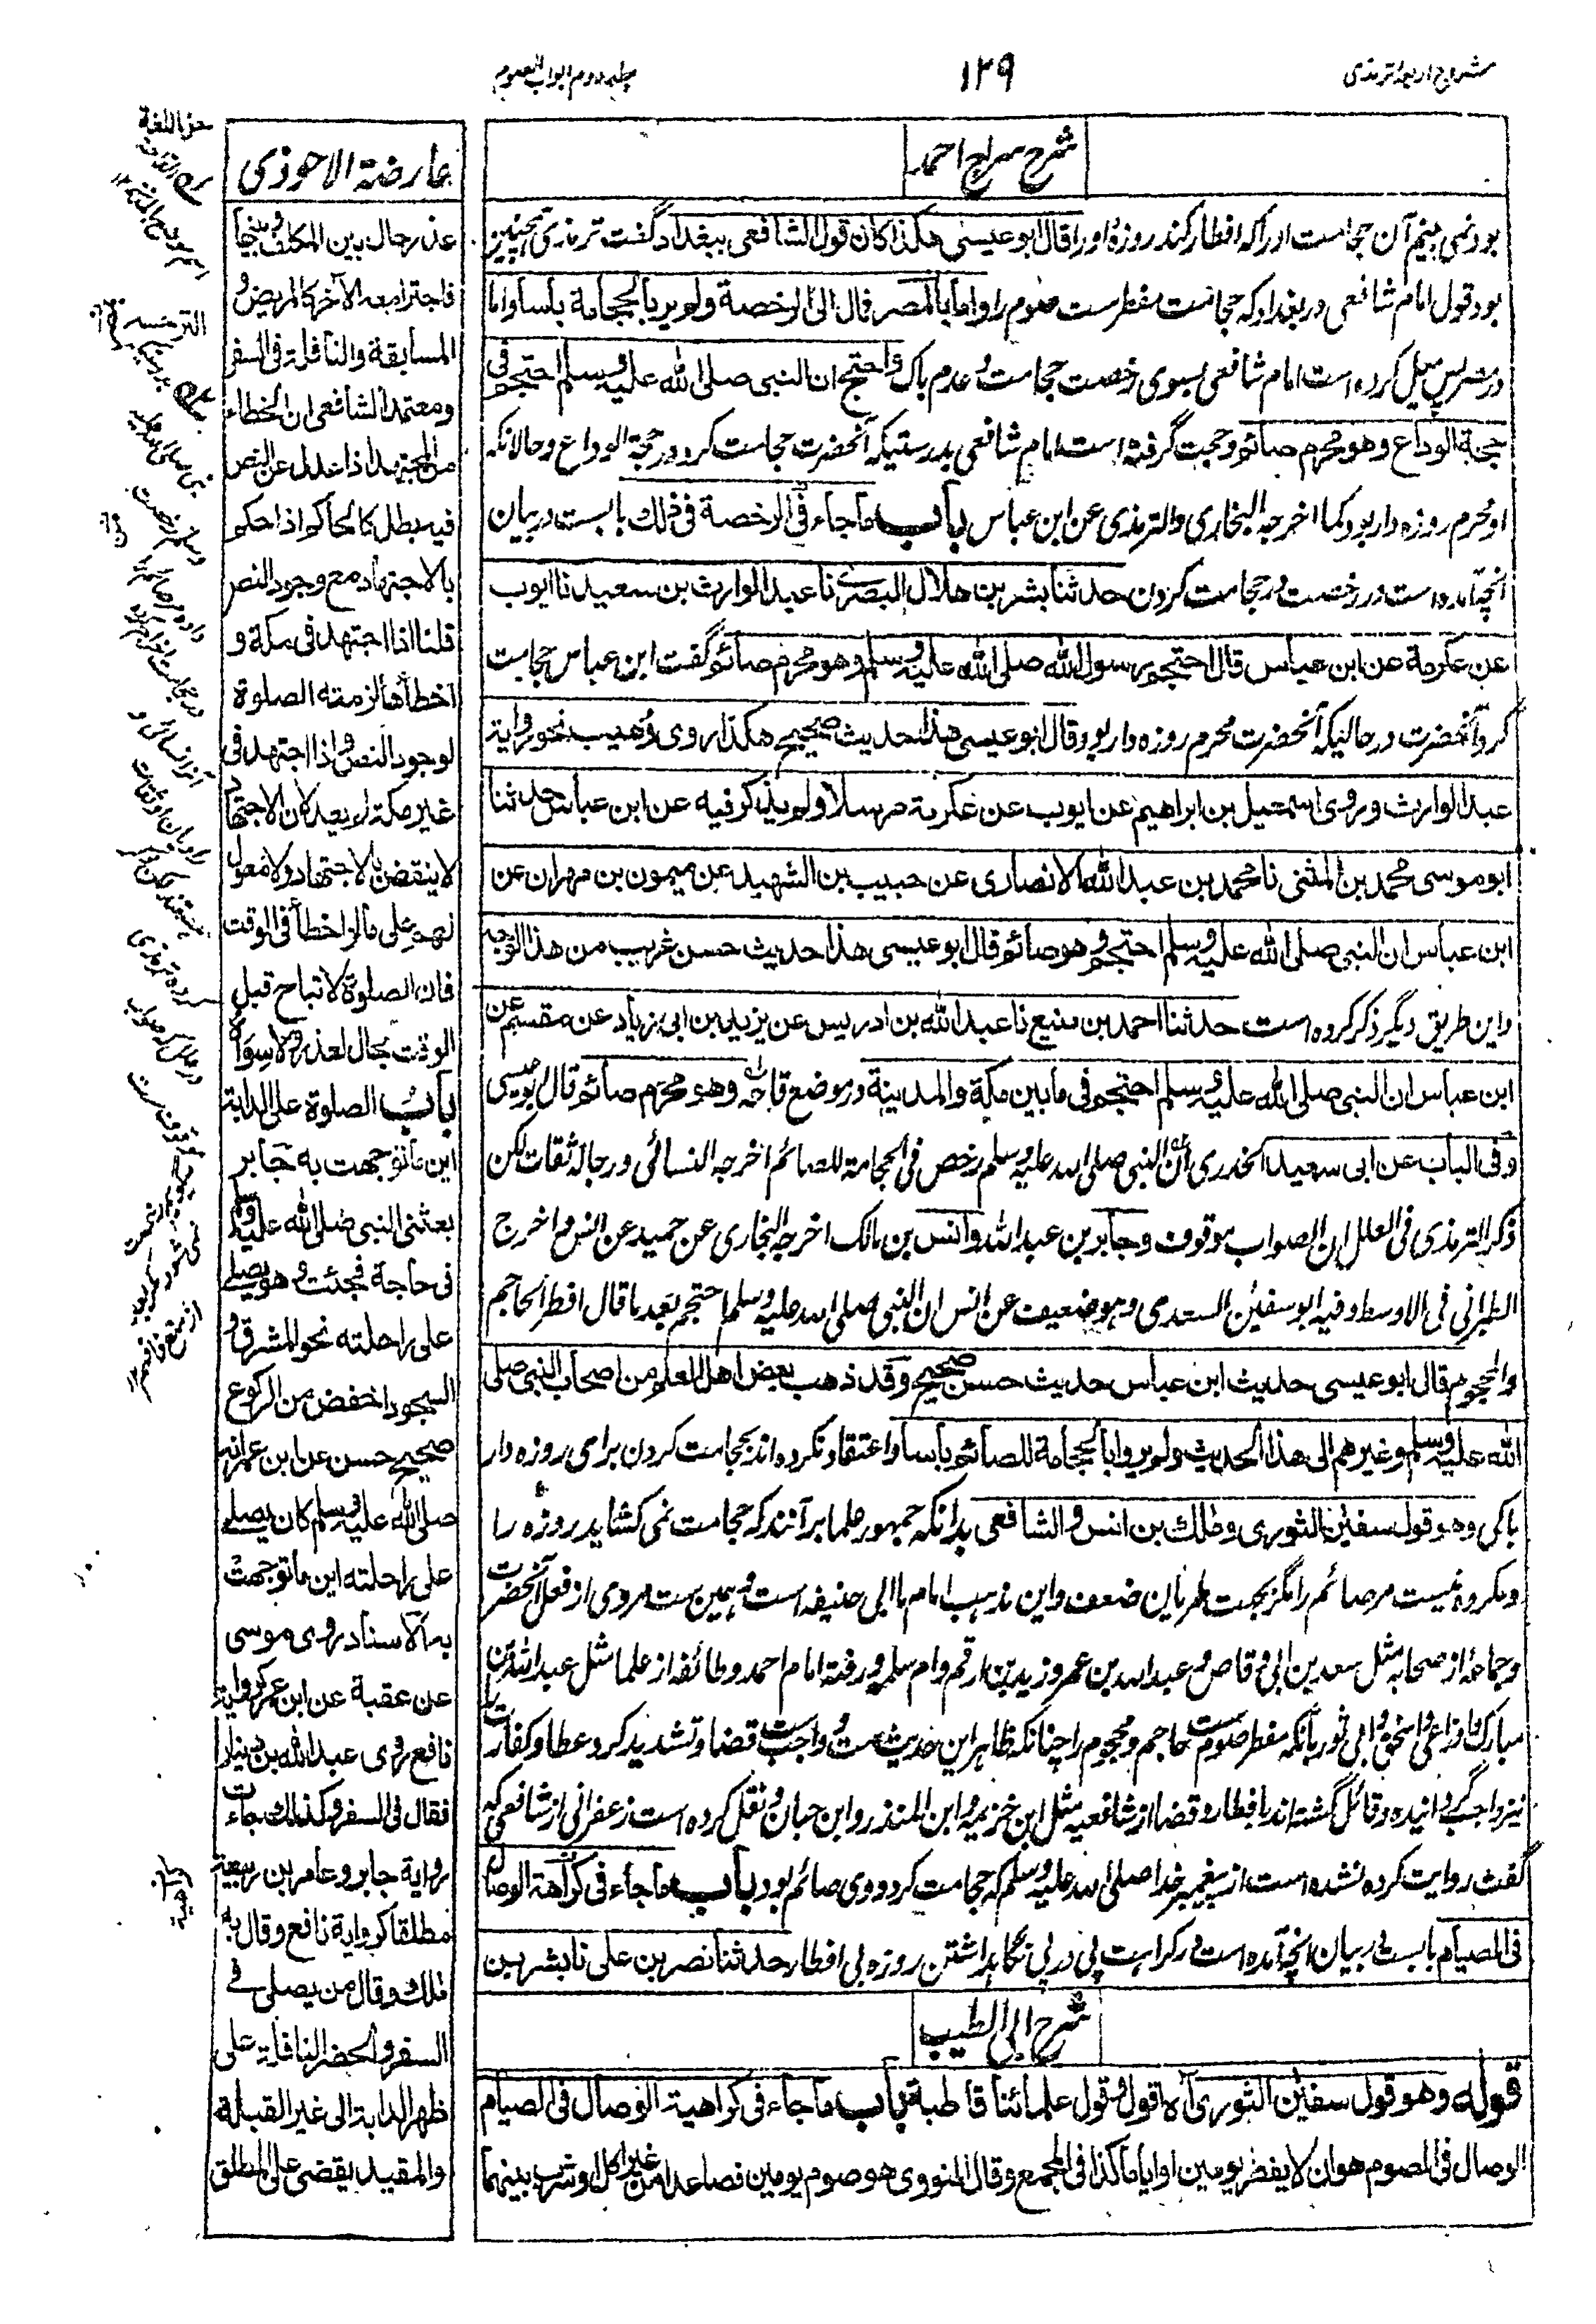 شروح اربعہ ترمذی
۱۲۹
جلد دوم ابواب الصوم
شرح سراج احمد
بود نمی بینم آن حجامت اورا که افطار کند روزهٔ او را قال ابو عیسی هکذا کان قول الشافعی ببغداد گفت ترمذی همچنین
بود قول امام شافعی در بغداد که حجامت مفطرست صوم را واما بمصر فمال الی الرخصة ولم یر بالحجامة باسا واما
در مصر پس میل کرده است امام شافعی بسوی رخصت حجامت وعدم باک واحتج ان النبی صلی الله علیه وسلم احتجم فی
حجة الوداع وهو محرم صائم وحجت گرفته است امام شافعی بدرستیکه آنحضرت حجامت کرد در حجة الوداع وحالانکه
او محرم روزه دار بود کما اخرجه البخاری والترمذی عن ابن عباس باب ما جاء فی الرخصة فی ذلك بابست در بیان
انچه آمده است در رخصت در حجامت کردن حدثنا بشر بن هلال البصری نا عبد الوارث بن سعید نا ایوب
عن عکرمة عن ابن عباس قال احتجم رسول الله صلی الله علیه وسلم وهو محرم صائم گفت ابن عباس حجامت
کرد آنحضرت در حالیکه آنحضرت محرم روزه دار بود قال ابو عیسی هذا حدیث صحیح هکذا روی وهیب نحو روایة
عبد الوارث وروی اسمعیل بن ابراهیم عن ایوب عن عکرمة مرسلا ولم یذکر فیه عن ابن عباس حدثنا
ابو موسی محمد بن المثنی نا محمد بن عبد الله الانصاری عن حبیب بن الشهید عن میمون بن مهران عن
ابن عباس ان النبی صلی الله علیه وسلم احتجم وهو صائم قال ابو عیسی هذا حدیث حسن غریب من هذا الوجه
واین طریق دیگر ذکر کرده است حدثنا احمد بن منیع نا عبد الله بن ادریس عن یزید بن ابی زیاد عن مقسم عن
ابن عباس ان النبی صلی الله علیه وسلم احتجم فی ما بین مکة والمدینة در موضع قاحه وهو محرم صائم قال ابو عیسی
وفی الباب عن ابی سعید الخدری ان النبی صلی الله علیه وسلم رخص فی الحجامة للصائم اخرجه النسائی ورجاله ثقات لکن
ذکر الترمذی فی العلل ان الصواب موقوف وجابر بن عبد الله وانس بن مالک اخرجه البخاری عن حمید عن انس واخرج
الطبرانی فی الاوسط وفیه ابو سفین السعدی وهو ضعیف عن انس ان النبی صلی الله علیه وسلم احتجم بعد ما قال افطر الحاجم
والمحجوم قال ابو عیسی حدیث ابن عباس حدیث حسن صحیح وقد ذهب بعض اهل العلم من اصحاب النبی صلی
الله علیه وسلم وغیرهم الی هذا الحدیث ولم یروا بالحجامة للصائم باسا واعتقاد نکرده اند بحجامت کردن برای روزه دار
باکی وهو قول سفین الثوری ومالك بن انس والشافعی بدانکه جمهور علما بر آنند که حجامت نمی کشاید روزه را
ومکروه نیست مر صائم را مگر بجهت طریان ضعف واین مذهب امام ما ابی حنیفه است وهمین ست مروی از فعل آنحضرت
وجماعهٔ از صحابه مثل سعد بن ابی وقاص وعبد الله بن عمر وزید بن ارقم وام سلمه ورفته امام احمد وطائفه از علما مثل عبد الله بن
مبارک واوزاعی واسحق وابی ثور بآنکه مفطر صوم ست حاجم ومحجوم را چنانکه ظاهر این حدیث ست وواجب ست قضا وتشدید کرد عطا وکفارت را
نیز واجب گردانیده وقائل گشته اند بافطار وقضا از شافعیه مثل ابن خزیمه وابن المنذر وابن حبان ونقل کرده است زعفرانی از شافعی که
گفت روایت کرده نشده است از پیغمبر خدا صلی الله علیه وسلم که حجامت کرد ووی صائم بود باب ما جاء فی کراهة الوصال
فی الصیام بابست در بیان انچه آمده است در کراهت پی در پی نگاهداشتن روزه بی افطار حدثنا نصر بن علی نا بشر بن
شرح ابی الطیب
قوله وهو قول سفین الثوری اه اقول وقول علمائنا قاطبة باب ما جاء فی کراهیة الوصال فی الصیام
الوصال فی الصوم هو ان لا یفطر یومین او ایاما کذا فی المجمع وقال النووی هو صوم یومین فصاعدا من غیر اکل او شرب بینهما
عارضة الاحوذی
عذر حال بین المکلف وبینها
فاجتزا معه الآخر کالمریض و
المسابقة والنافلة فی السفر
ومعتمد الشافعی ان الخطاء
من المجتهد اذا عدل عن النص
فیه بطل کالحاکم اذا حکم
بالاجتهاد مع وجود النص
قلنا اذا اجتهد فی مکة و
اخطأها لزمته الصلوة
لوجود النص واذا اجتهد فی
غیر مکة لم یعد لان الاجتهاد
لا ینقض بالاجتهاد ولا معول
لهم علی ما لو اخطأ فی الوقت
فان الصلوة لا تباح قبل
الوقت بحال لعذر ولا سواه
باب الصلوة علی الدابة
این ما توجهت به جابر
بعثنی النبی صلی الله علیه وسلم
فی حاجة فجئت وهو یصلی
علی راحلته نحو المشرق و
السجود اخفض من الرکوع
صحیح حسن عن ابن عمر انه
صلی الله علیه وسلم کان یصلی
علی راحلته این ما توجهت
به الاسناد روی موسی
عن عقبة عن ابن عمر کروایة
نافع وروی عبد الله بن دینار
فقال فی السفر وکذلك جاءت
روایة جابر وعامر بن ربیعة
مطلقا کروایة نافع وقال به
مالك وقال من یصلی فی
السفر والحضر النافلة علی
ظهر الدابة الی غیر القبلة
والمقید یقضی علی المطلق